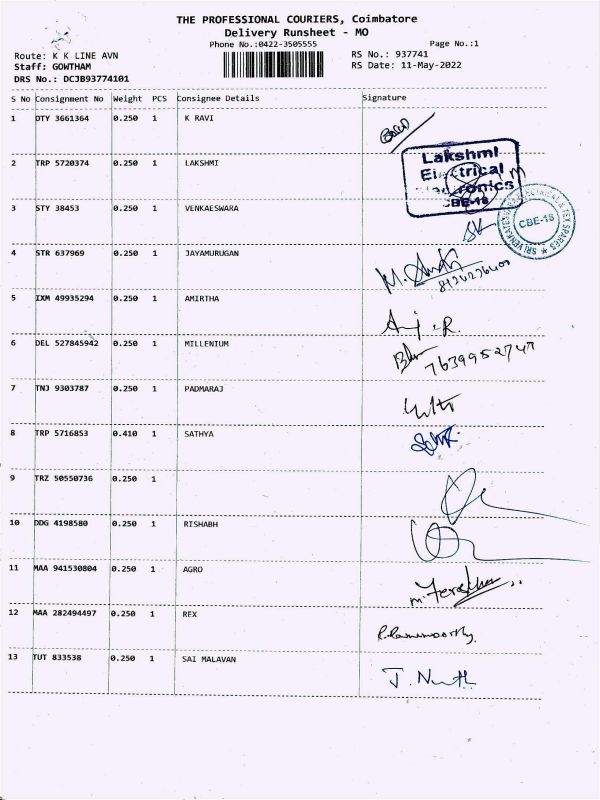 THE PROFESSIONAL COURIERS, Coimbatore
Delivery Runsheet - MO
Phone No.:0422-3505555 Page No.:1
Route: K K LINE AVN RS No.: 937741
Staff: GOWTHAM RS Date: 11-May-2022
DRS No.: DCJB93774101
S No Consignment No Weight PCS Consignee Details Signature
1 OTY 3661364 0.250 1 K RAVI
2 TRP 5720374 0.250 1 LAKSHMI
Lakshmi
Electrical
Electronics
CBE-18
3 STY 38453 0.250 1 VENKAESWARA
CBE-18
4 STR 637969 0.250 1 JAYAMURUGAN
5 IXM 49935294 0.250 1 AMIRTHA
6 DEL 527845942 0.250 1 MILLENIUM
7639952747
7 TNJ 9303787 0.250 1 PADMARAJ
8 TRP 5716853 0.410 1 SATHYA
9 TRZ 50550736 0.250 1
10 DDG 4198580 0.250 1 RISHABH
11 MAA 941530804 0.250 1 AGRO
12 MAA 282494497 0.250 1 REX
13 TUT 833538 0.250 1 SAI MALAVAN